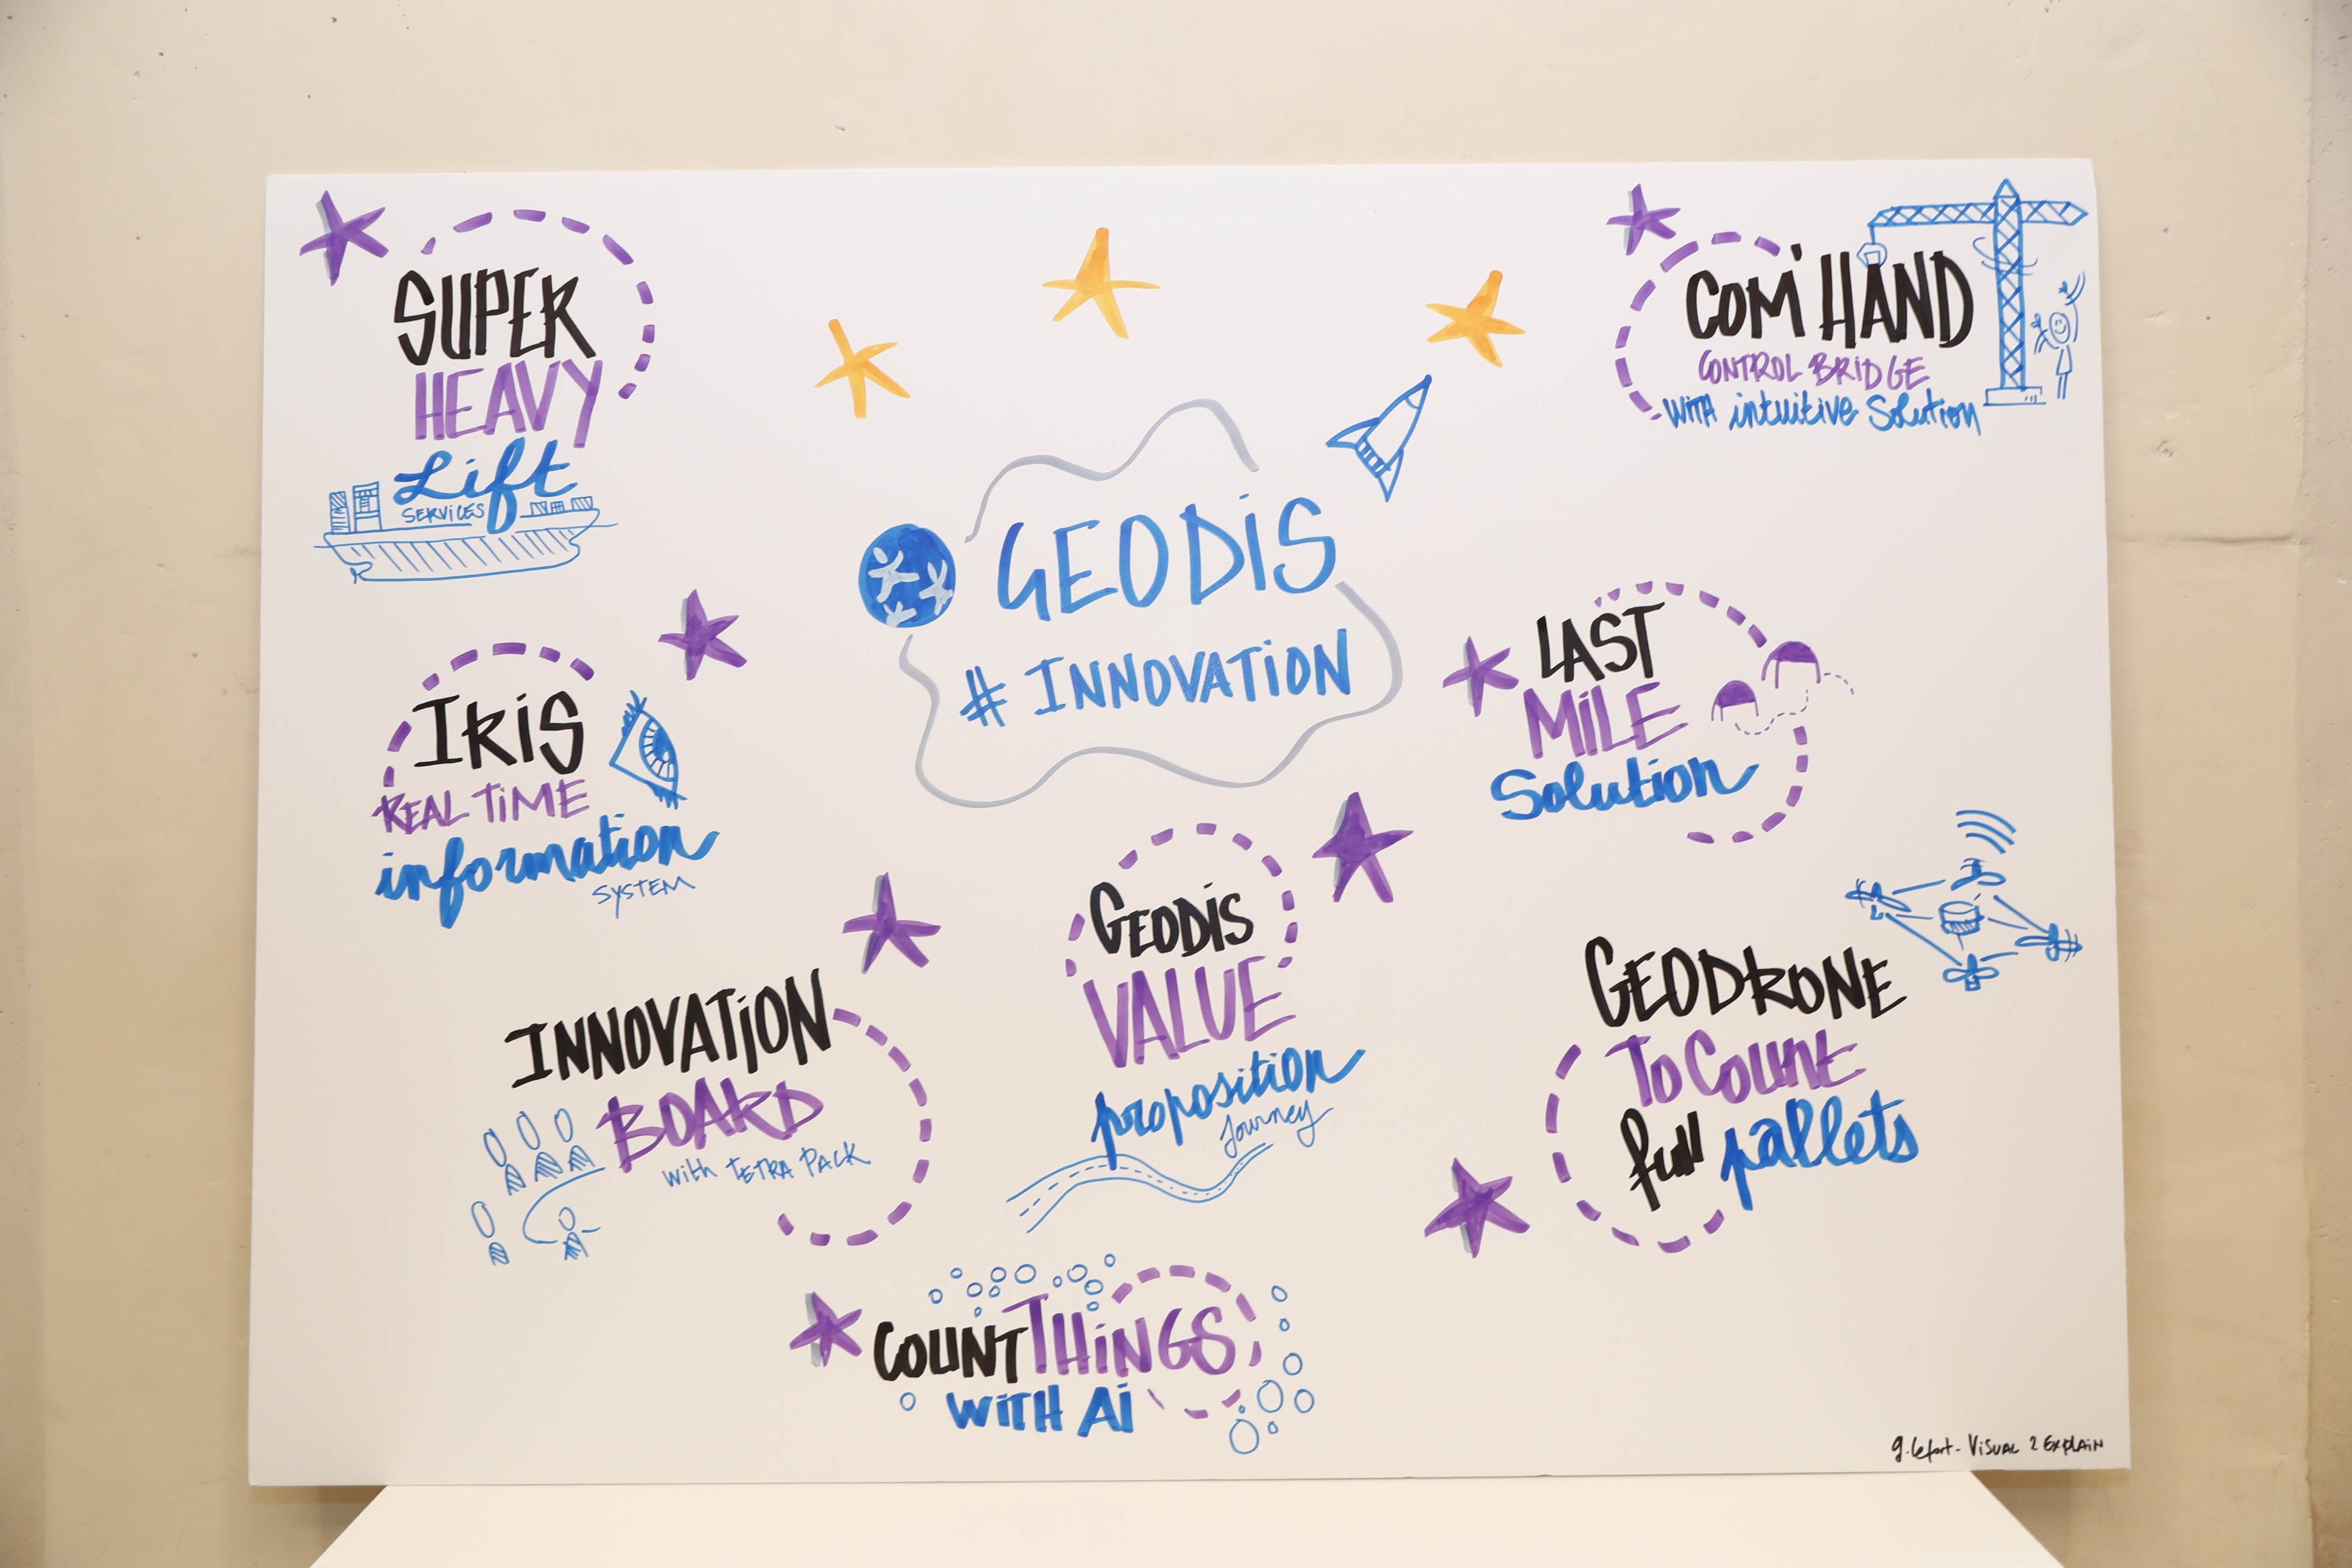 SUPER
HEAVY
Lift
SERVICES
COM'HAND
CONTROL BRIDGE
WITH intuitive Solution
GEODIS
# INNOVATION
IRIS
REAL TIME
information
SYSTEM
LAST
MILE
Solution
INNOVATION
BOARD
with TETRA PACK
GEODIS
VALUE
proposition
Journey
GEODRONE
To Count
full pallets
COUNTTHINGS
WITH Ai
g. lefort - VISUAL 2 EXPLAIN